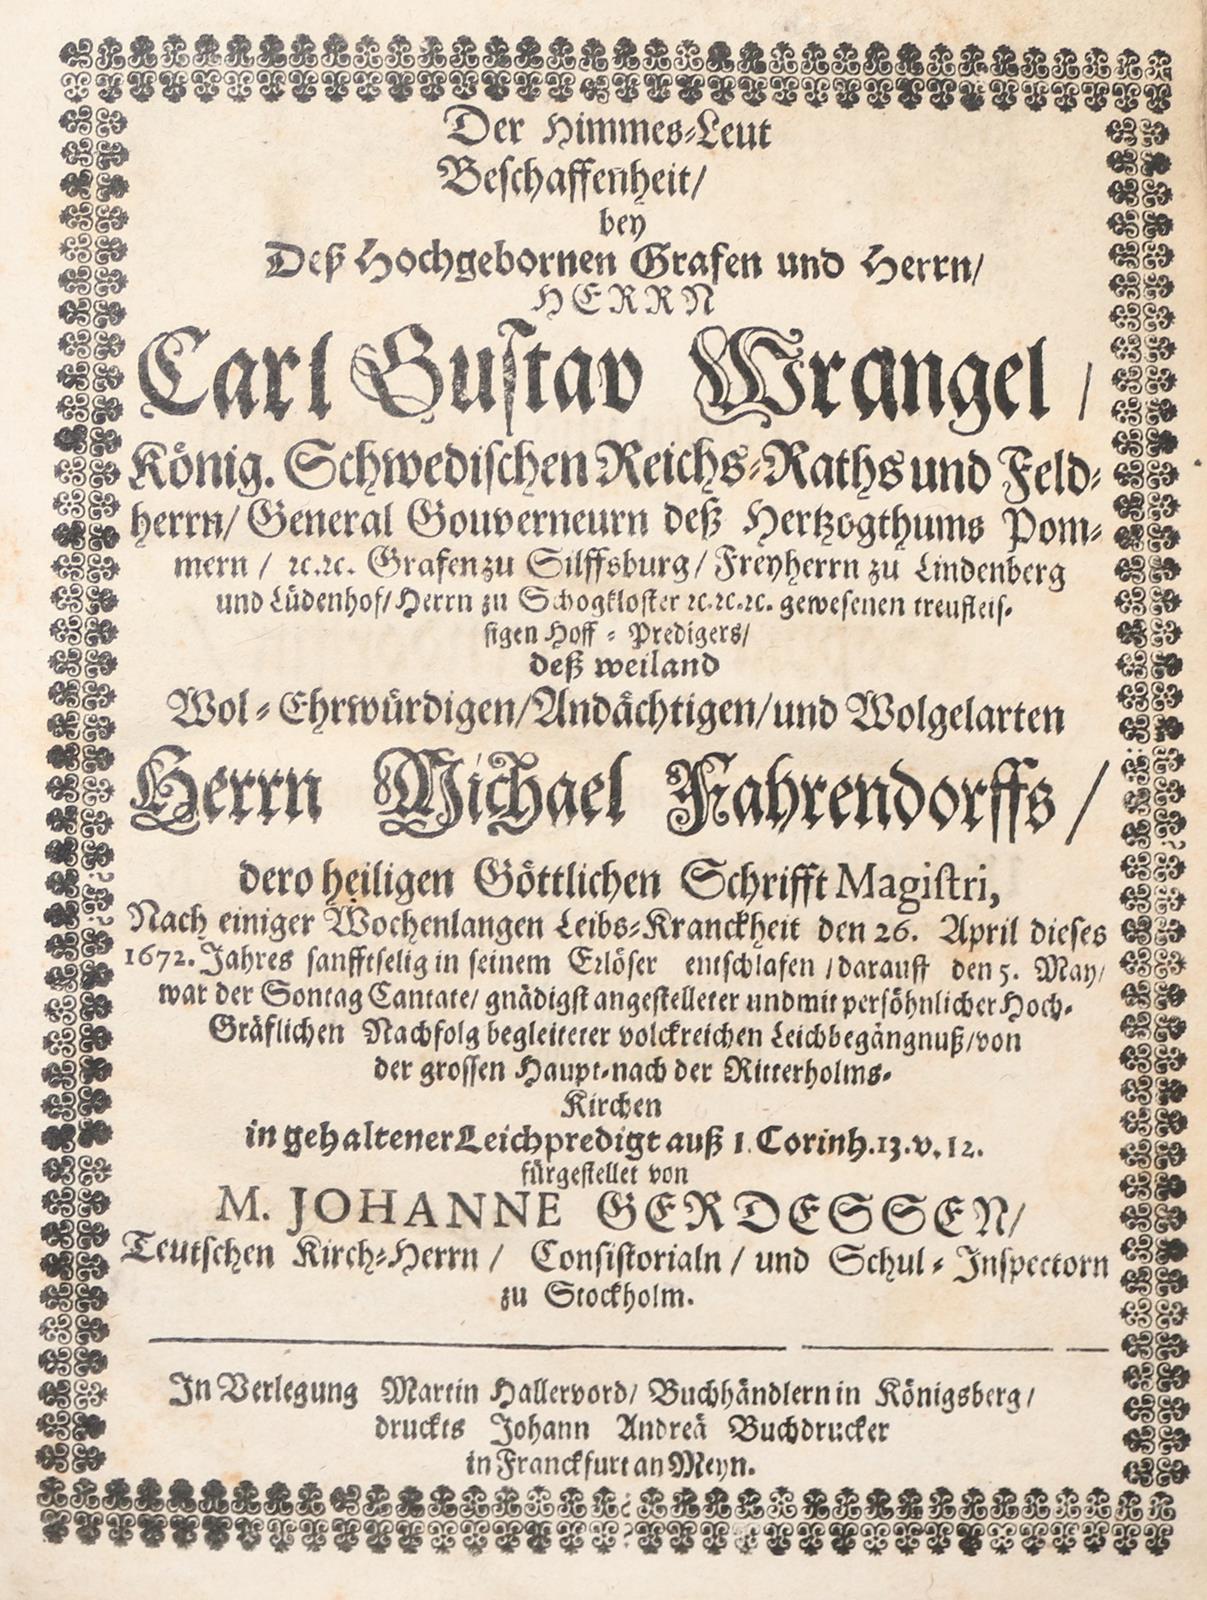 Der Himmes-Leut
Beschaffenheit/
bey
Deß Hochgebornen Grafen und Herrn/
HERRN
Carl Gustav Wrangel /
König. Schwedischen Reichs-Raths und Feld-
herrn/ General Gouverneurn deß Hertzogthums Pom-
mern / ꝛc.ꝛc. Grafen zu Silffsburg/ Freyherrn zu Lindenberg
und Lüdenhof/ Herrn zu Schogkloster ꝛc.ꝛc.ꝛc. gewesenen treufleis-
sigen Hoff - Predigers/
deß weiland
Wol-Ehrwürdigen/Andächtigen/und Wolgelarten
Herrn Michael Fahrendorffs /
dero heiligen Göttlichen Schrifft Magistri,
Nach einiger Wochenlangen Leibs-Kranckheit den 26. April dieses
1672. Jahres sanfftselig in seinem Erlöser entschlafen / darauff den 5. May/
war der Sontag Cantate/ gnädigst angestelleter und mit persöhnlicher Hoch-
Gräflichen Nachfolg begleiteter volckreichen Leichbegängnuß/von
der grossen Haupt-nach der Ritterholms-
Kirchen
in gehaltener Leichpredigt auß 1. Corinh.13.v.12.
fürgestellet von
M. JOHANNE GERDESSEN/
Teutschen Kirch-Herrn / Consistorialn / und Schul - Inspectorn
zu Stockholm.
In Verlegung Martin Hallervord/ Buchhändlern in Königsberg/
druckts Johann Andreä Buchdrucker
in Franckfurt an Meyn.